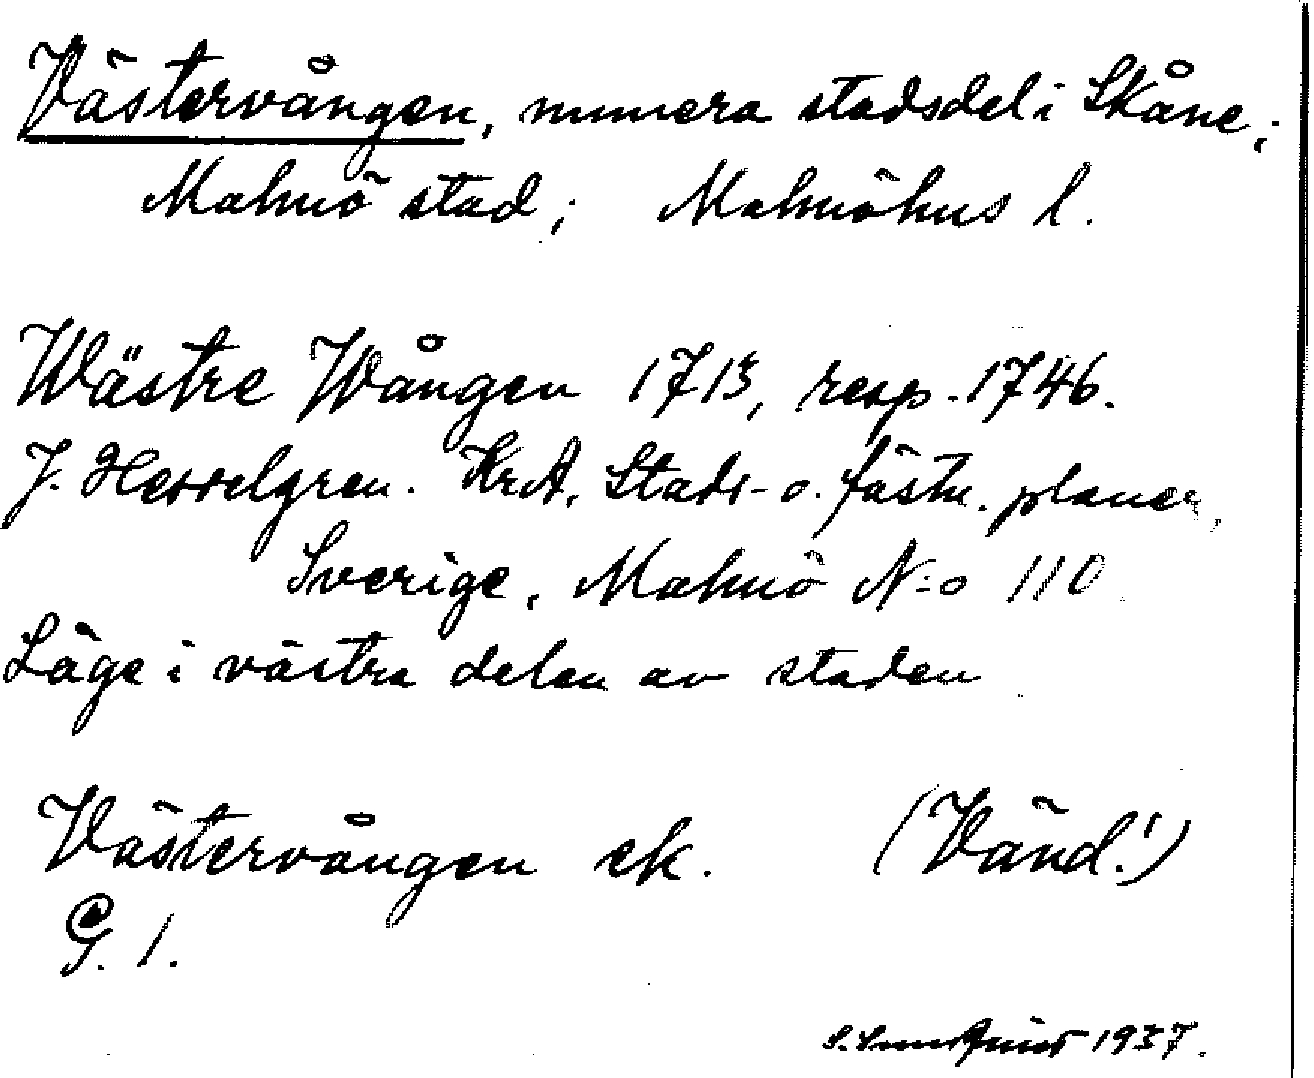 Västervången, numera stadsdel i Skåne;
Malmö stad; Malmöhus l.
Wästre Wången 1713, resp. 1746.
J. Hesselgren. KrA, Stads- o. fästn. planer,
Sverige, Malmö N:o 110
Läge i västra delen av staden
Västervången ek. (Vänd!)
G. 1.
S. 1937.